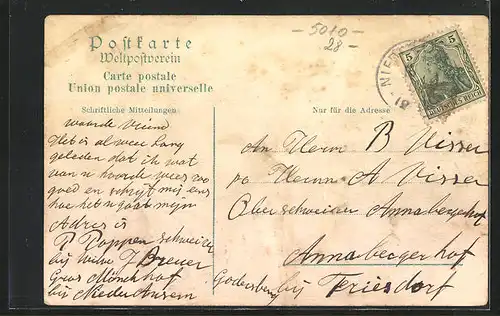 - 5010 -
28 -
Postkarte
Weltpostverein
Carte postale
Union postale universelle
Schriftliche Mitteilungen
Nur für die Adresse
5 5
DEUTSCHES REICH
NIED
waarde Vriend
Het is al weer lang
geleden dat ik wat
van u hoorde wees zoo
goed en schrijf mij eens
hoe het u gaat mijn
Adres is
P Poppen schweizer
bij
Gros Mönchhof
bij Nieder Aussem
An Herrn B Visser
pa Herrn A Visser
Oberschweizer Annabergerhof
Annabergerhof
Godesberg bij Friesdorf